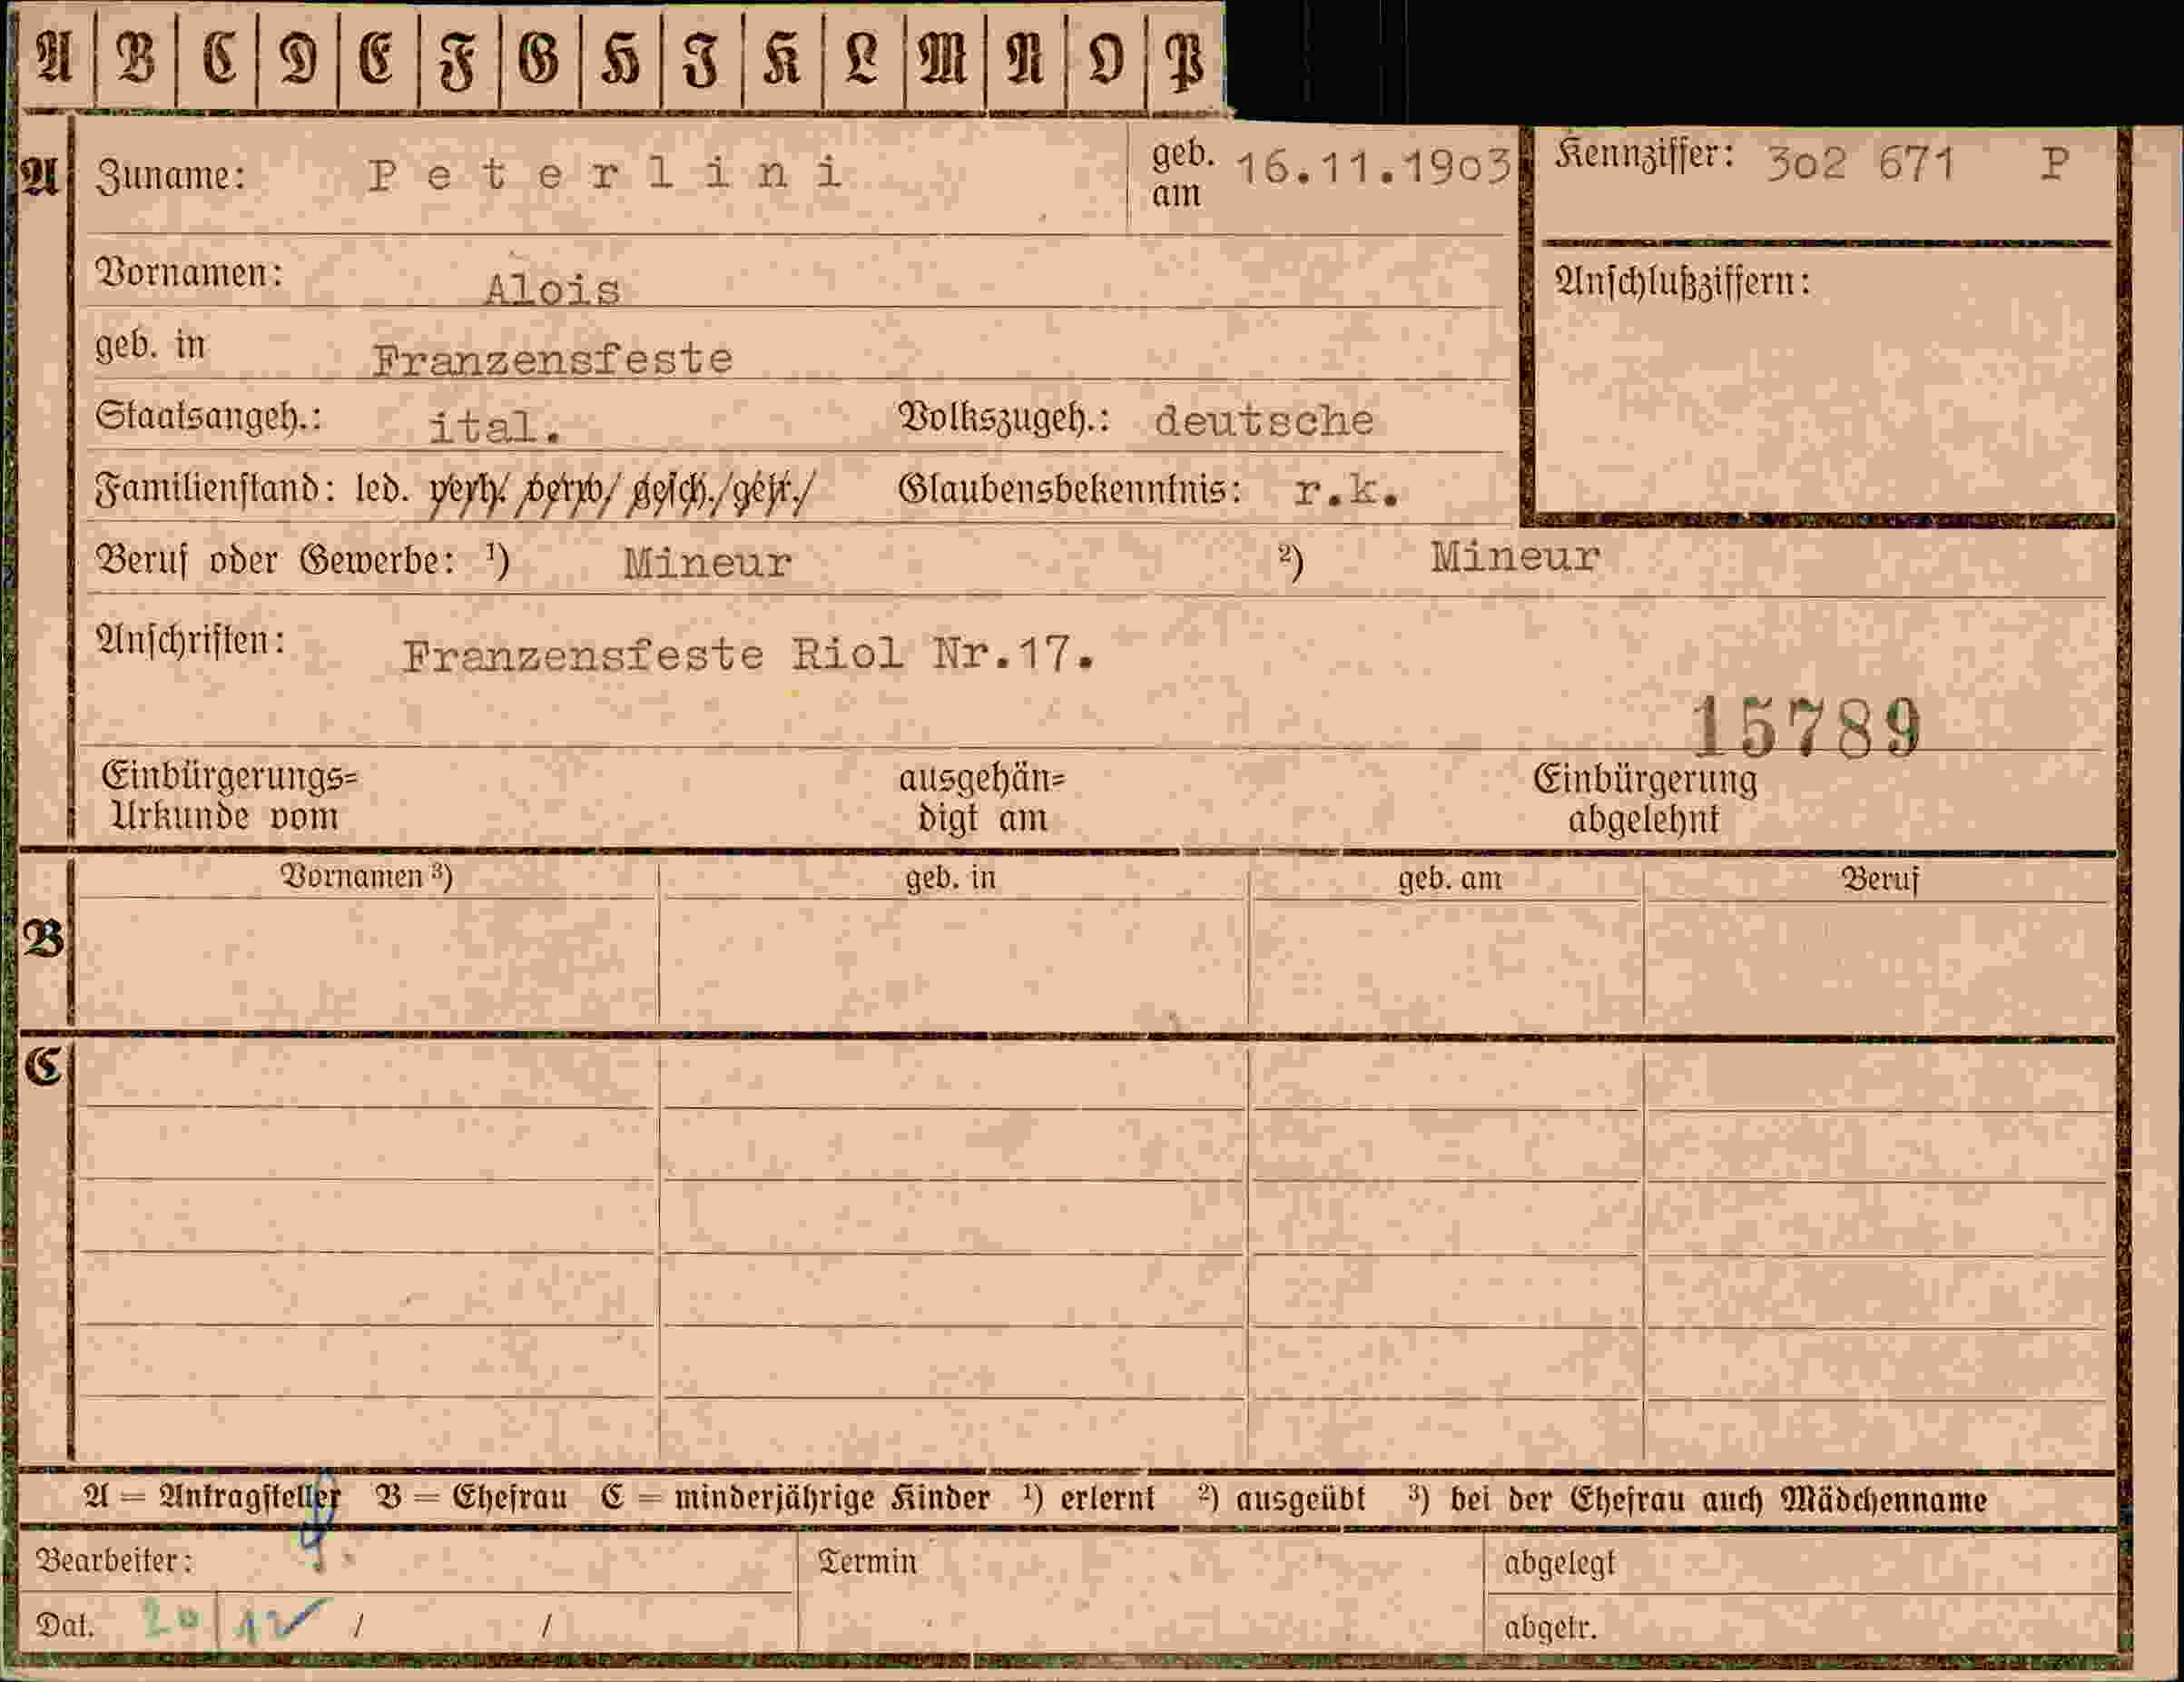 A B C D E F G H I K L M N O P
A Zuname: Peterlini geb. am 16.11.1903 Kennziffer: 302 671 P
Vornamen: Alois Anschlußziffern:
geb. in Franzensfeste
Staatsangeh.: ital. Volkszugeh.: deutsche
Familienstand: led. verh./ verw./ gesch./getr./ Glaubensbekenntnis: r.k.
Beruf oder Gewerbe: ¹) Mineur ²) Mineur
Anschriften: Franzensfeste Riol Nr.17.
15789
Einbürgerungs= ausgehän= Einbürgerung
Urkunde vom digt am abgelehnt
Vornamen ³) geb. in geb. am Beruf
B
C
A = Antragsteller B = Ehefrau C = minderjährige Kinder ¹) erlernt ²) ausgeübt ³) bei der Ehefrau auch Mädchenname
Bearbeiter: Termin abgelegt
Dat. 20 12 / / abgetr.